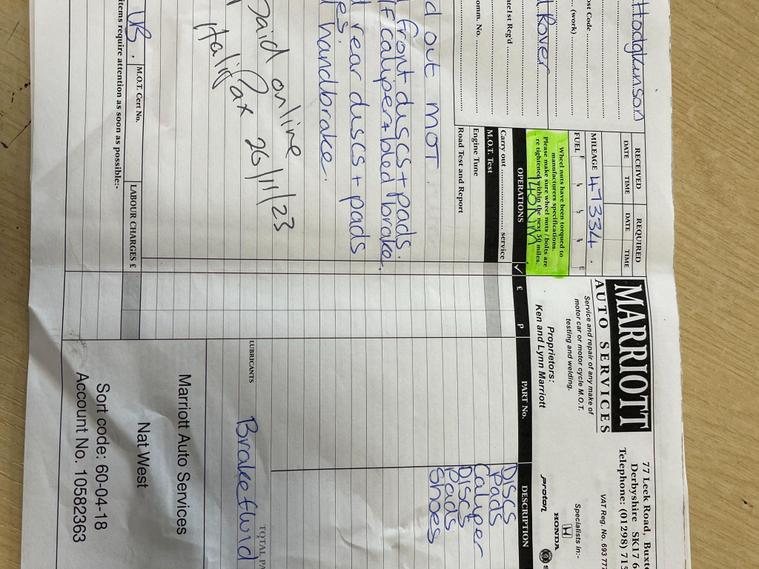 Hodgkinson
Post Code
(work)
d Rover
Date 1st Reg'd
Comm. No.
RECEIVED
REQUIRED
DATE
TIME
DATE
TIME
MILEAGE 47334.
FUEL E ¼ ½ ¾ F
Wheel nuts have been torqued to
manufacturers specifications.
Please make sure wheel nuts / bolts are
re tightened within the next 50 miles.
140NM.
OPERATIONS ✓ £ P
Carry out .......... service
M.O.T. Test
Engine Tune
Road Test and Report
d out MOT.
front discs + pads.
caliper + bled brake.
rear discs + pads
handbrake.
Paid online
Halifax 26/11/23
UB.
M.O.T. Cert No.
LABOUR CHARGES £
items require attention as soon as possible:-
MARRIOTT
AUTO SERVICES
Service and repair of any make of
motor car or motor cycle M.O.T.
testing and welding.
Proprietors:
Ken and Lynn Marriott
77 Leek Road, Buxto
Derbyshire SK17 6
Telephone: (01298) 715
VAT Reg. No. 693 77
Specialists in:-
HONDA
proton
PART No.
DESCRIPTION
Discs
Pads
Caliper
Discs
Pads
Shoes
TOTAL PA
LUBRICANTS
Brake fluid
Marriott Auto Services
Nat West
Sort code: 60-04-18
Account No. 10582363